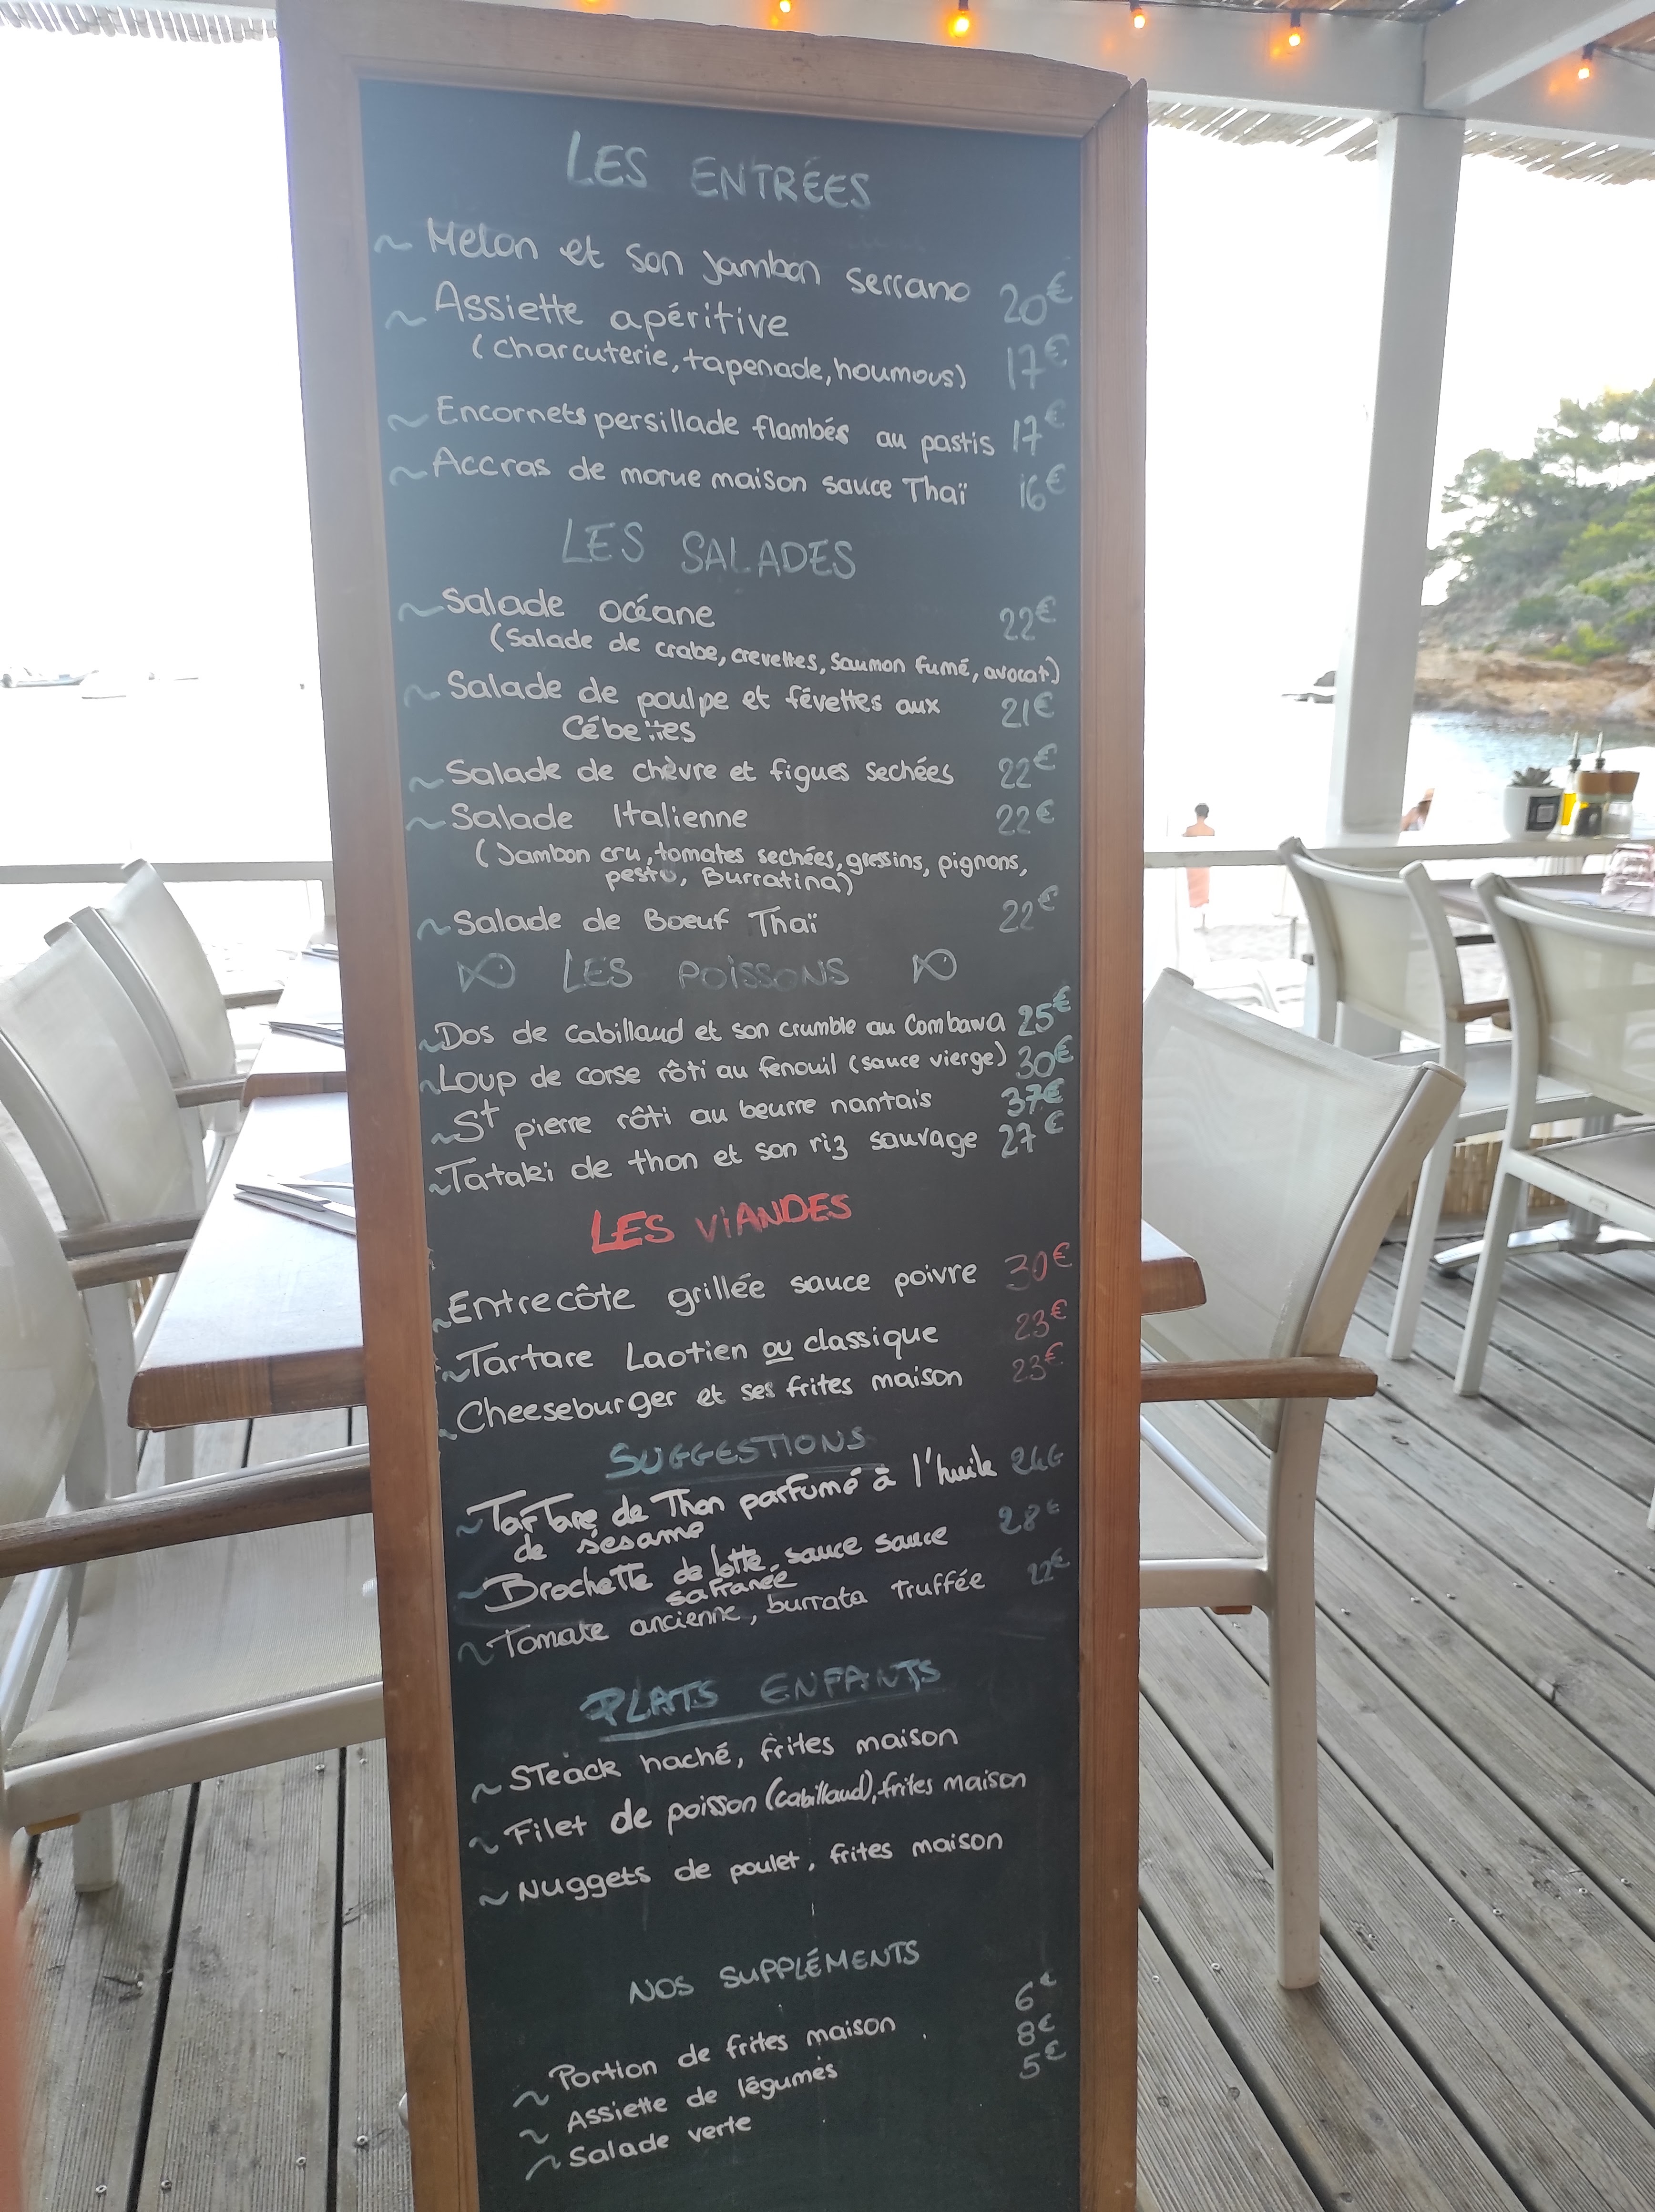 LES ENTRÉES
~ Melon et son jambon serrano 20€
~ Assiette apéritive
(charcuterie, tapenade, houmous) 17€
~ Encornets persillade flambés au pastis 17€
~ Accras de morue maison sauce Thaï 16€
LES SALADES
~ Salade océane 22€
(Salade de crabe, crevettes, saumon fumé, avocat)
~ Salade de poulpe et févettes aux 21€
Cébettes
~ Salade de chèvre et figues sechées 22€
~ Salade Italienne 22€
(Jambon cru, tomates sechées, gressins, pignons,
pesto, Burratina)
~ Salade de Boeuf Thaï 22€
LES POISSONS
~ Dos de cabillaud et son crumble au Combawa 25€
~ Loup de corse rôti au fenouil (sauce vierge) 30€
~ St pierre rôti au beurre nantais 37€
~ Tataki de thon et son riz sauvage 27€
LES VIANDES
~ Entrecôte grillée sauce poivre 30€
~ Tartare Laotien ou classique 23€
~ Cheeseburger et ses frites maison 23€
SUGGESTIONS
~ Tartare de Thon parfumé à l'huile 24€
de sésame
~ Brochette de lotte, sauce sauce 28€
safranée
~ Tomate ancienne, burrata truffée 22€
PLATS ENFANTS
~ STeack haché, frites maison
~ Filet de poisson (cabillaud), frites maison
~ Nuggets de poulet, frites maison
NOS SUPPLÉMENTS
~ Portion de frites maison 6€
~ Assiette de légumes 8€
~ Salade verte 5€